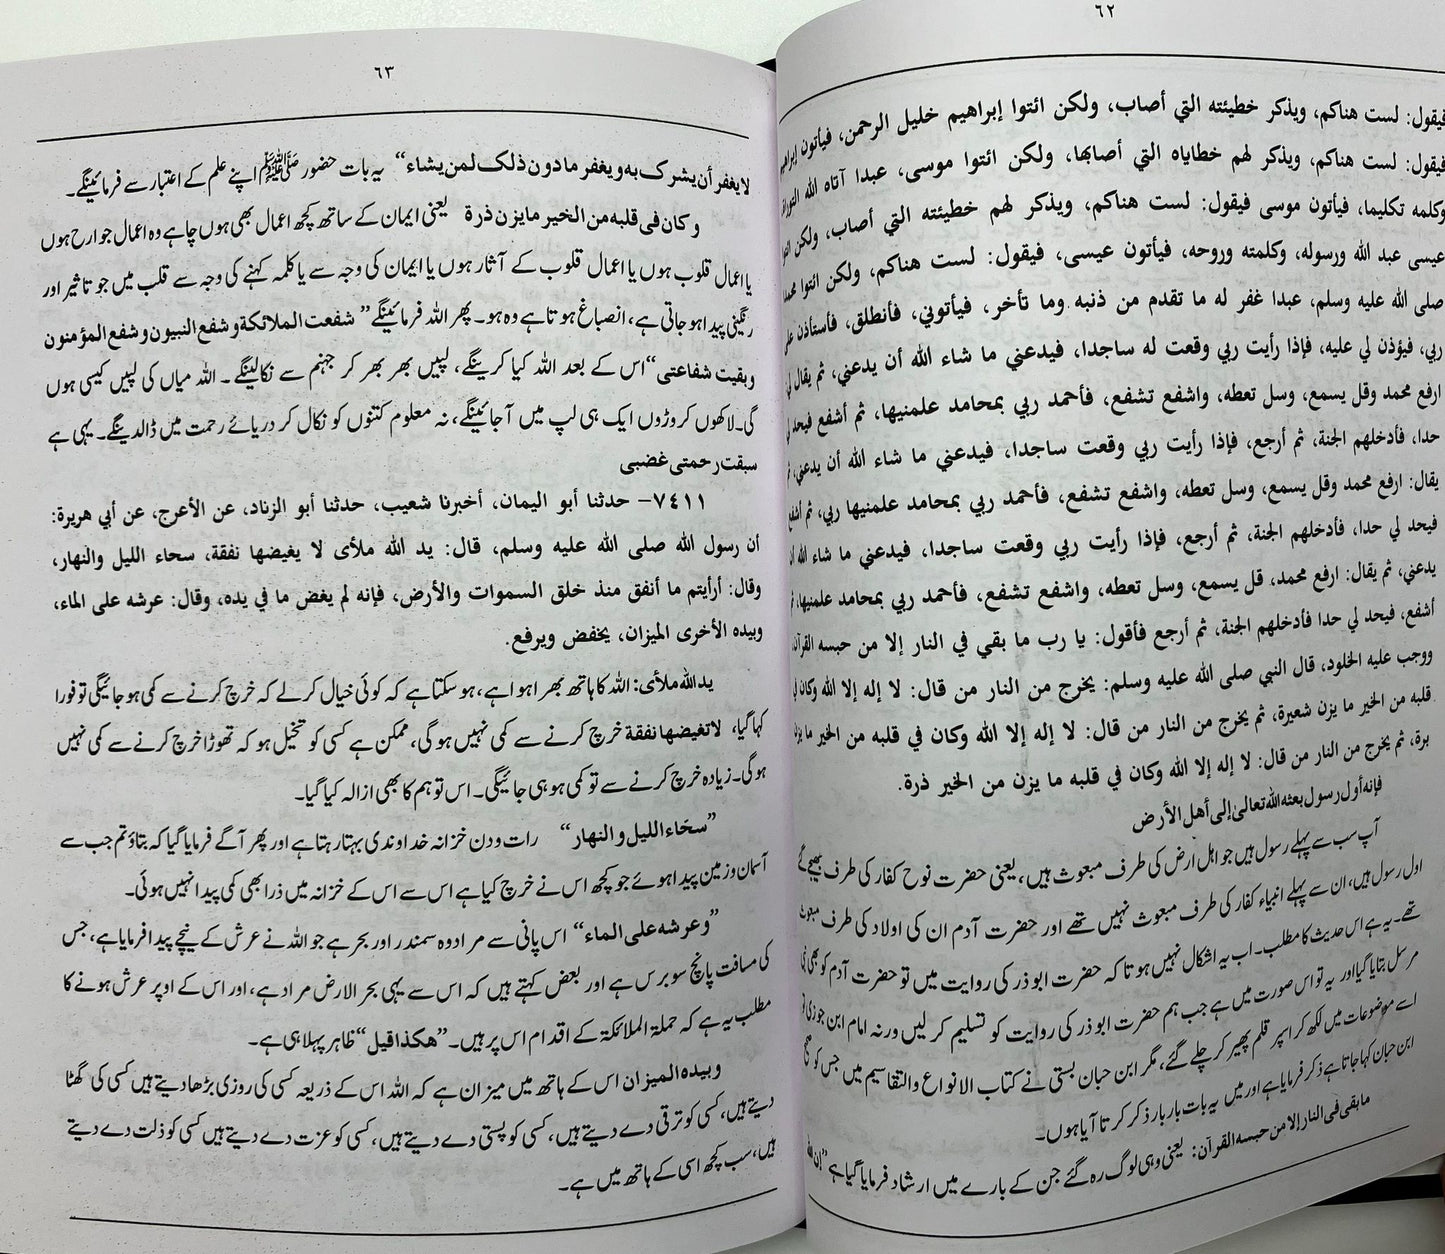 ٦٢
فيقول: لست هناكم، ويذكر خطيئته التي أصاب، ولكن ائتوا إبراهيم خليل الرحمن، فيأتون إبراهيم
فيقول: لست هناكم، ويذكر لهم خطاياه التي أصابها، ولكن ائتوا موسى، عبدا آتاه الله التوراة
وكلمه تكليما، فيأتون موسى فيقول: لست هناكم، ويذكر لهم خطيئته التي أصاب، ولكن ائتوا
عيسى عبد الله ورسوله، وكلمته وروحه، فيأتون عيسى، فيقول: لست هناكم، ولكن ائتوا محمدا
صلى الله عليه وسلم، عبدا غفر له ما تقدم من ذنبه وما تأخر، فيأتوني، فأنطلق، فأستأذن على
ربي، فيؤذن لي عليه، فإذا رأيت ربي وقعت له ساجدا، فيدعني ما شاء الله أن يدعني، ثم يقال لي
ارفع محمد وقل يسمع، وسل تعطه، واشفع تشفع، فأحمد ربي بمحامد علمنيها، ثم أشفع فيحد لي
حدا، فأدخلهم الجنة، ثم أرجع، فإذا رأيت ربي وقعت ساجدا، فيدعني ما شاء الله أن يدعني، ثم
يقال: ارفع محمد وقل يسمع، وسل تعطه، واشفع تشفع، فأحمد ربي بمحامد علمنيها ربي، ثم أشفع
فيحد لي حدا، فأدخلهم الجنة، ثم أرجع، فإذا رأيت ربي وقعت ساجدا، فيدعني ما شاء الله أن
يدعني، ثم يقال: ارفع محمد، قل يسمع، وسل تعطه، واشفع تشفع، فأحمد ربي بمحامد علمنيها، ثم
أشفع، فيحد لي حدا فأدخلهم الجنة، ثم أرجع فأقول: يا رب ما بقي في النار إلا من حبسه القرآن،
ووجب عليه الخلود، قال النبي صلى الله عليه وسلم: يخرج من النار من قال: لا إله إلا الله وكان في
قلبه من الخير ما يزن شعيرة، ثم يخرج من النار من قال: لا إله إلا الله وكان في قلبه من الخير ما يزن
برة، ثم يخرج من النار من قال: لا إله إلا الله وكان في قلبه ما يزن من الخير ذرة.
فإنه أول رسول بعثه الله تعالىٰ إلى أهل الأرض
آپ سب سے پہلے رسول ہیں جو اہل ارض کی طرف مبعوث ہیں، یعنی حضرت نوح کفار کی طرف بھیجے گئے
اول رسول ہیں، ان سے پہلے انبیاء کفار کی طرف مبعوث نہیں تھے اور حضرت آدم ان کی اولاد کی طرف مبعوث
تھے۔ یہ ہے اس حدیث کا مطلب۔ اب یہ اشکال نہیں ہوتا کہ حضرت ابوذر کی روایت میں تو حضرت آدم کو بھی نبی
مرسل بتایا گیا اور یہ تو اس صورت میں ہے جب ہم حضرت ابوذر کی روایت کو تسلیم کرلیں ورنہ امام ابن جوزی تو
اسے موضوعات میں لکھ کر اسپر قلم پھیر کر چلے گئے، مگر ابن حبان بستی نے کتاب الانواع والتقاسیم میں جس کو صحیح
ابن حبان کہا جاتا ہے ذکر فرمایا ہے اور میں یہ بات بار بار ذکر کرتا آیا ہوں۔
مابقی فی النار إلا من حبسہ القرآن: یعنی وہی لوگ رہ گئے جن کے بارے میں ارشاد فرمایا گیا ہے "إن الله
٦٣
لا یغفر أن یشرک به ویغفر مادون ذلک لمن یشاء" یہ بات حضور ﷺ اپنے علم کے اعتبار سے فرمائینگے۔
وکان فی قلبه من الخیر ما یزن ذرة یعنی ایمان کے ساتھ کچھ اعمال بھی ہوں چاہے وہ اعمال جوارح ہوں
یا اعمال قلوب ہوں یا اعمال قلوب کے آثار ہوں یا ایمان کی وجہ سے یا کلمہ کہنے کی وجہ سے قلب میں جو تاثیر اور
رنگینی پیدا ہوجاتی ہے، انصباغ ہوتا ہے وہ ہو۔ پھر اللہ فرمائینگے "شفعت الملائکة وشفع النبیون وشفع المؤمنون
وبقیت شفاعتی" اس کے بعد اللہ کیا کرینگے، لپیں بھر بھر کر جہنم سے نکالینگے۔ اللہ میاں کی لپیں کیسی ہوں
گی۔ لاکھوں کروڑوں ایک ہی لپ میں آجائینگے، نہ معلوم کتنوں کو نکال کر دریائے رحمت میں ڈالدینگے۔ یہی ہے
سبقت رحمتی غضبی
٧٤١١- حدثنا أبو اليمان، أخبرنا شعيب، حدثنا أبو الزناد، عن الأعرج، عن أبي هريرة:
أن رسول الله صلى الله عليه وسلم، قال: يد الله ملأى لا يغيضها نفقة، سحاء الليل والنهار،
وقال: أرأيتم ما أنفق منذ خلق السموات والأرض، فإنه لم يغض ما في يده، وقال: عرشه على الماء،
وبيده الأخرى الميزان، يخفض ويرفع.
یدالله ملأی: اللہ کا ہاتھ بھرا ہوا ہے، ہوسکتا ہے کہ کوئی خیال کرلے کہ خرچ کرنے سے کمی ہوجائیگی تو فورا
کہا گیا، لا تغیضها نفقة خرچ کرنے سے کمی نہیں ہوگی، ممکن ہے کسی کو تخیل ہو کہ تھوڑا خرچ کرنے سے کمی نہیں
ہوگی۔ زیادہ خرچ کرنے سے تو کمی ہو ہی جائیگی۔ اس توہم کا بھی ازالہ کیا گیا۔
"سحّاء اللیل والنهار" رات ودن خزانہ خداوندی بہتا رہتا ہے اور پھر آگے فرمایا گیا کہ بتاؤ تم جب سے
آسمان وزمین پیدا ہوئے جو کچھ اس نے خرچ کیا ہے اس سے اس کے خزانہ میں ذرا بھی کمی پیدا نہیں ہوئی۔
"وعرشه علی الماء" اس پانی سے مراد وہ سمندر اور بحر ہے جو اللہ نے عرش کے نیچے پیدا فرمایا ہے، جس
کی مسافت پانچ سو برس ہے اور بعض کہتے ہیں کہ اس سے یہی بحر الارض مراد ہے، اور اس کے اوپر عرش ہونے کا
مطلب یہ ہے کہ حملة الملائکة کے اقدام اس پر ہیں۔ "هکذا قیل" ظاہر پہلا ہی ہے۔
وبیده المیزان اس کے ہاتھ میں میزان ہے کہ اللہ اس کے ذریعہ کسی کی روزی بڑھا دیتے ہیں کسی کی گھٹا
دیتے ہیں، کسی کو ترقی دے دیتے ہیں، کسی کو پستی دے دیتے ہیں، کسی کو عزت دے دیتے ہیں کسی کو ذلت دے دیتے
ہیں، سب کچھ اسی کے ہاتھ میں ہے۔